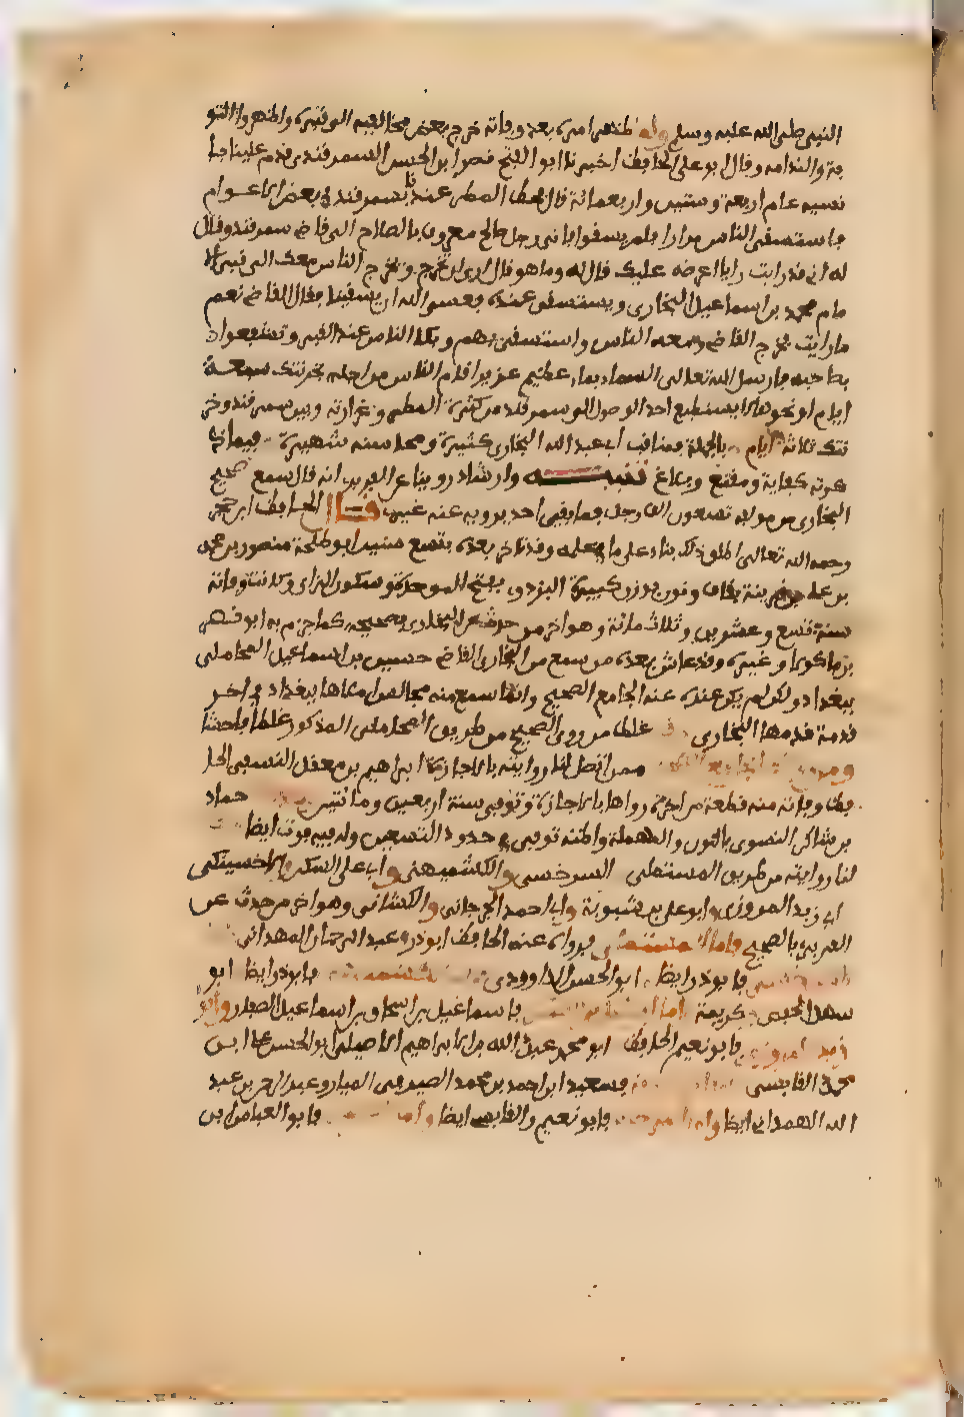 النبي صلى الله عليه وسلم ولما ظهر امره بعد وفاته خرج بعض مخالفيه الى قبره واظهروا التو
بة والندامة وقال ابو علي الحافظ اخبرنا ابو الفتح نصر ابن الحسن السمرقندي قدم علينا بلـ
نسية عام اربعة وستين واربعمائة قال قحط المطر عندنا بسمرقند في بعض الاعوام
فاستسقى الناس مرارا فلم يسقوا فاتى رجل صالح معروف بالصلاح الى قاضي سمرقند وقال
له اني قد رايت رايا اعرضه عليك قال له وما هو قال ارى ان تخرج وتخرج الناس معك الى قبر الا
مام محمد بن اسماعيل البخاري ويستسقى عنده فعسى الله ان يسقينا فقال القاضي نعم
ما رايت فخرج القاضي ومعه الناس واستسقى بهم وبكا الناس عند القبر وتشفعوا
بصاحبه فارسل الله تعالى السماء بماء عظيم غزير اقام الناس من اجله بخرتنك سبعة
ايام او نحوها لا يستطيع احد الوصول الى سمرقند من كثرة المطر وغزارته وبين سمرقند وخر
تنك ثلاثة ايام وبالجملة فمناقب ابي عبد الله البخاري كثيرة ومحاسنه شهيرة فيما ذ
كرته كفاية ومقنع وبلاغ تنبيه وارشاد روينا عن الفربري انه قال سمع صحيح
البخاري من مولفه تسعون الف رجل فما بقي احد يرويه عنه غيري قال الحافظ ابن حجر
رحمه الله تعالى اطلق ذلك بناء على ما في علمه وقد تاخر بعده بتسع سنين ابو طلحة منصور بن محمد
بن علي بن قرينة بقاف ونون بوزن كبيرة البزدوي بفتح الموحدة وسكون الزاي وكانت وفاته
سنة تسع وعشرين وثلاث مائة وهو اخر من حدث عن البخاري بصحيحه كما جزم به ابو نصر
بن ماكولا وغيره وقد عاش بعده من سمع من البخاري القاضي حسين بن اسماعيل المحاملي
ببغداد ولكن لم يكن عنده عنه الجامع الصحيح وانما سمع منه مجالس املاها ببغداد في اخر
قدمة قدمها البخاري وقد غلط من روى الصحيح من طريق المحاملي المذكور غلطا فاحشا
ممن اتصل لنا روايته بالاجازة ابراهيم بن معقل النسفي الحا
فظ وفاته منه قطعة من اخره رواها بالاجازة وتوفي سنة اربعين ومائتين حماد
بن شاكر النسوي بالنون والمهملة واظنه توفي في حدود التسعين وله فيه فوت ايضا
لنا روايته من طريق المستملي السرخسي والكشميهني وابي علي السكن والاخسيكتي
ابي زيد المروزي وابو علي بن شبوية وابا احمد الجرجاني والكشاني وهو اخر من حدث عن
الفربري بالصحيح فاما المستملي فرواه عنه الحافظ ابو ذر وعبد الرحمان الهمداني
فابو ذر ايضا ابو الحسن الداوودي فابو ذر ايضا ابو
سهل الحفصي وكريمة فاسماعيل بن اسحاق بن اسماعيل الصفار وابو
زيد المروزي فابو نعيم الحافظ ابو محمد عبد الله بن ابراهيم الاصيلي ابو الحسن علي ابن
محمد القابسي فسعيد ابن احمد بن محمد الصيرفي العيار وعبد الرحمن بن عبد
الله الهمداني ايضا فابو نعيم والقابسي ايضا واما فابو العباس ابن